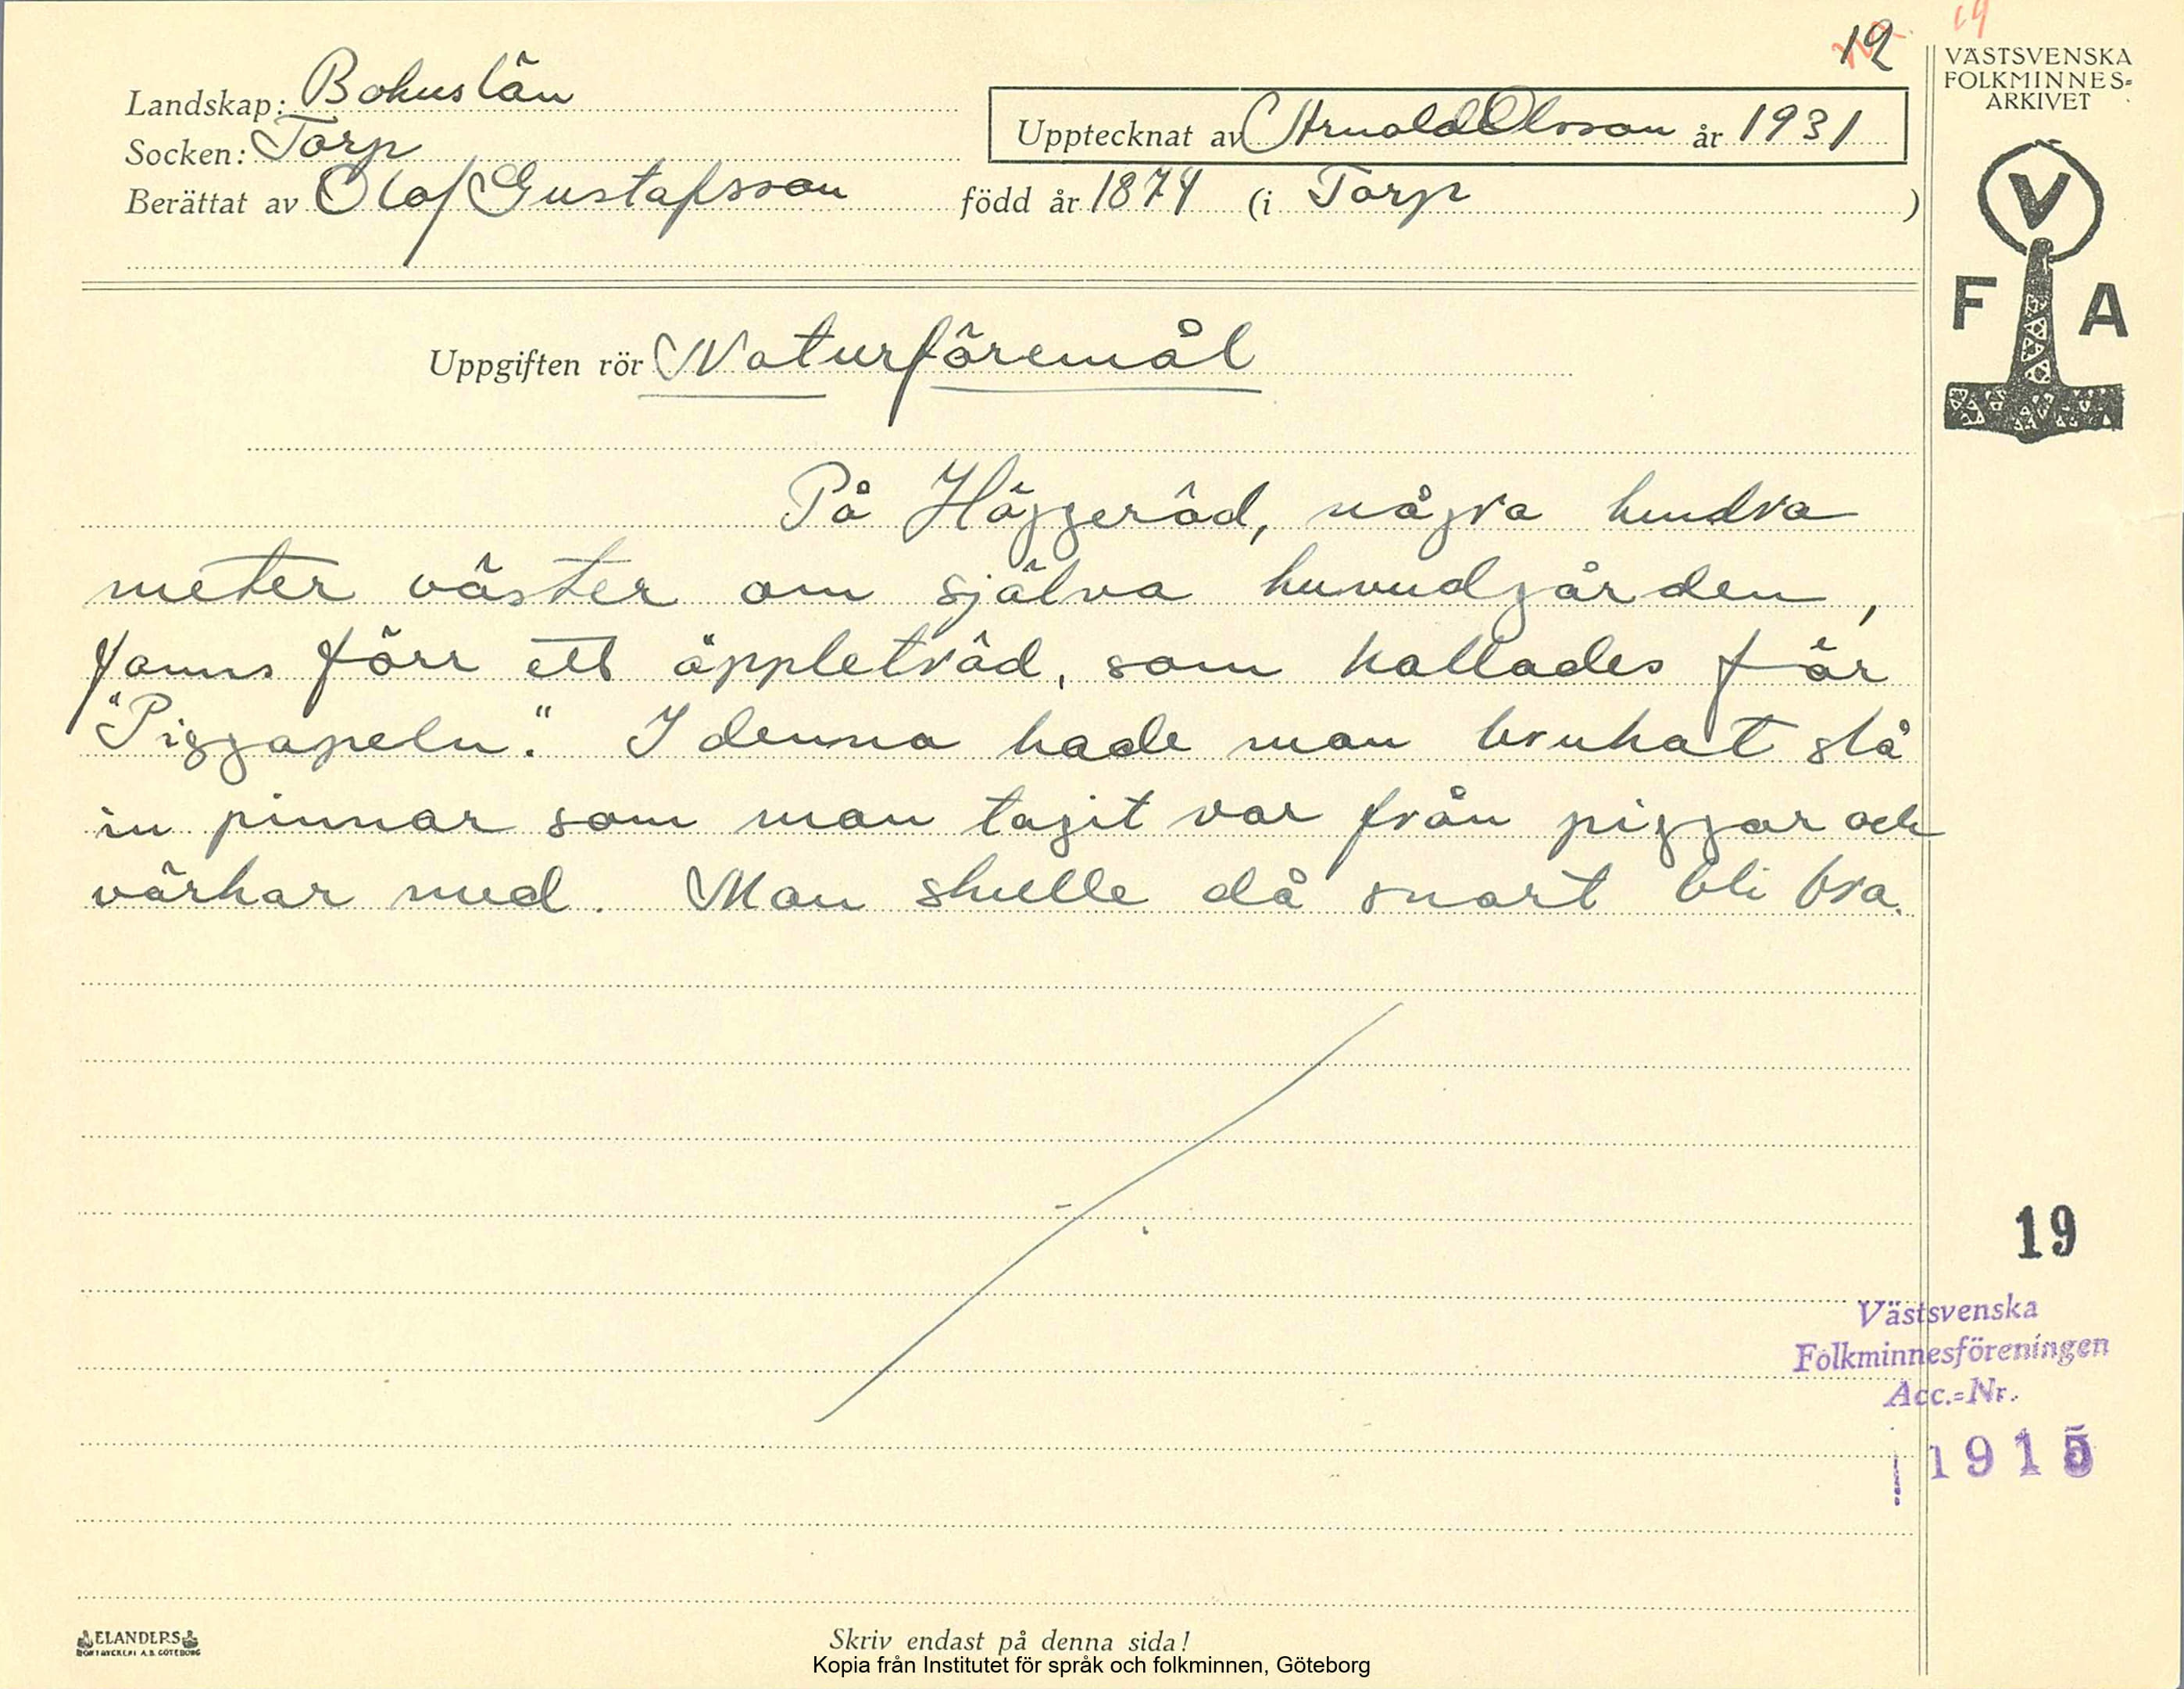 12 19
Landskap: Bohuslän
Socken: Torp
Upptecknat av Arnold Olsson år 1931
Berättat av Olof Gustafsson född år 1874 (i Torp )
VÄSTSVENSKA
FOLKMINNES=
ARKIVET
V
F A
Uppgiften rör Naturföremål
På Häggeräd, några hundra
meter väster om själva huvudgården,
fanns förr ett äppleträd, som kallades för
"Piggapeln." I denna hade man brukat slå
in pinnar som man tagit var från piggar och
värkar med. Man skulle då snart bli bra.
19
Västsvenska
Folkminnesföreningen
Acc.=Nr.
1915
ELANDERS
BOKTRYCKERI A.B. GÖTEBORG
Skriv endast på denna sida!
Kopia från Institutet för språk och folkminnen, Göteborg